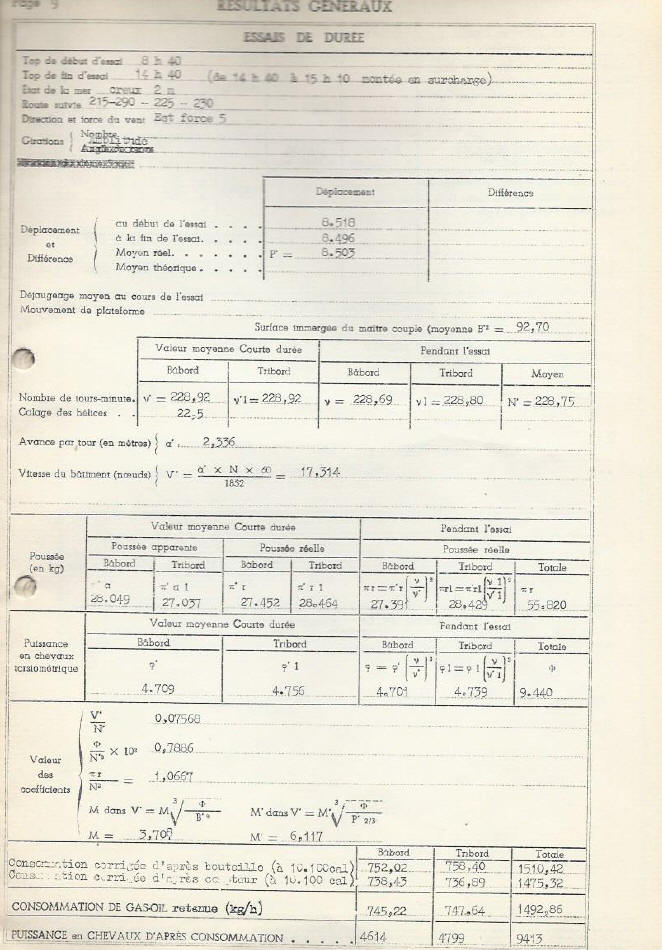 Page 9
RESULTATS GENERAUX
ESSAIS DE DUREE
Top de début d'essai 8 h 40
Top de fin d'essai 14 h 40 (de 14 h 40 à 15 h 10 montée en surcharge)
Etat de la mer creux 2 m
Route suivie 215-290 - 225 - 230
Direction et force du vent Est force 5
Girations { Nombre
Amplitude
Déplacement Différence
Déplacement et Différence
au début de l'essai . . . . 8.518
à la fin de l'essai. . . . . 8.496
Moyen réel. . . . . . . P' = 8.503
Moyen théorique . . . . .
Déjaugeage moyen au cours de l'essai
Mouvement de plateforme
Surface immergée du maître couple (moyenne B'² = 92,70
Valeur moyenne Courte durée Pendant l'essai
Bâbord Tribord Bâbord Tribord Moyen
Nombre de tours-minute. ν' = 228,92 ν'1 = 228,92 ν = 228,69 ν1 = 228,80 N' = 228,75
Calage des hélices . . 22,5
Avance par tour (en mètres) } a'. 2,336
Vitesse du bâtiment (nœuds) } V' = a' × N × 60 / 1852 = 17,314
Valeur moyenne Courte durée Pendant l'essai
Poussée (en kg)
Poussée apparente Poussée réelle Poussée réelle
Bâbord Tribord Bâbord Tribord Bâbord Tribord Totale
π' a π' a 1 π' r π' r 1 πr = π'r (ν/ν')² πr1 = πr1 (ν1/ν'1)² πr
28.049 27.037 27.452 28.464 27.391 28.429 55.820
Valeur moyenne Courte durée Pendant l'essai
Puissance en chevaux torsiométrique
Bâbord Tribord Bâbord Tribord Totale
φ' φ' 1 φ = φ' (ν/ν')³ φ1 = φ 1 (ν1/ν'1)³ Φ
4.709 4.756 4.701 4.739 9.440
Valeur des coefficients
V'/N' 0,07568
Φ/N'³ × 10³ 0,7886
πr/N² = 1,0667
M dans V' = M ³√Φ/B'² M' dans V' = M' ³√Φ/P' 2/3
M = 3,709 M' = 6,117
Bâbord Tribord Totale
Consommation corrigée d'après bouteille (à 10.100cal) 752,02 758,40 1510,42
Consommation corrigée d'après compteur (à 10.100 cal) 738,43 736,89 1475,32
CONSOMMATION DE GAS-OIL retenue (kg/h) 745,22 747,64 1492,86
PUISSANCE en CHEVAUX D'APRÈS CONSOMMATION . . . . . 4614 4799 9413